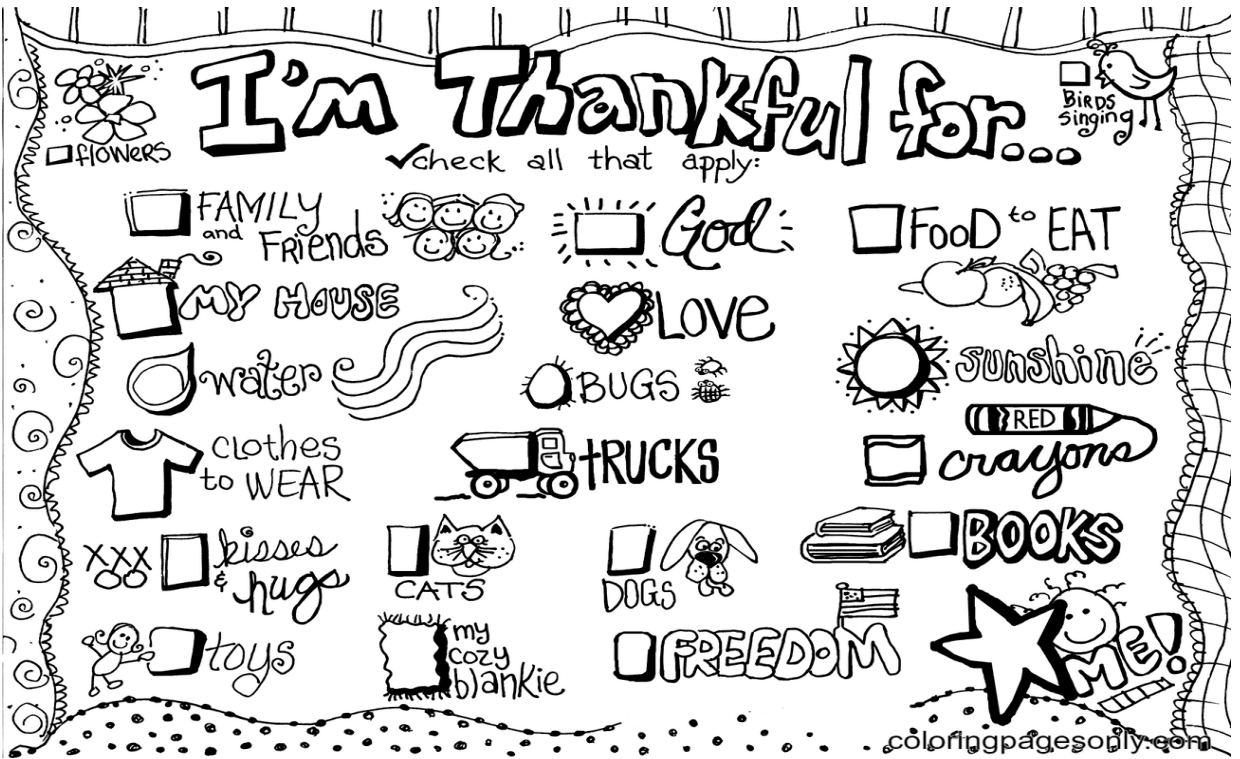 I'm Thankful for...
Birds
singing
flowers
✓check all that apply:
FAMILY
and Friends
God
FOOD to EAT
MY HOUSE
LOVE
water
BUGS
sunshine
RED
CLOTHES
to WEAR
tRUCKS
crayons
XXX
OO
kisses
& hugs
CATS
DOGS
BOOKS
toys
my
cozy
blankie
FREEDOM
ME!
coloringpagesonly.com